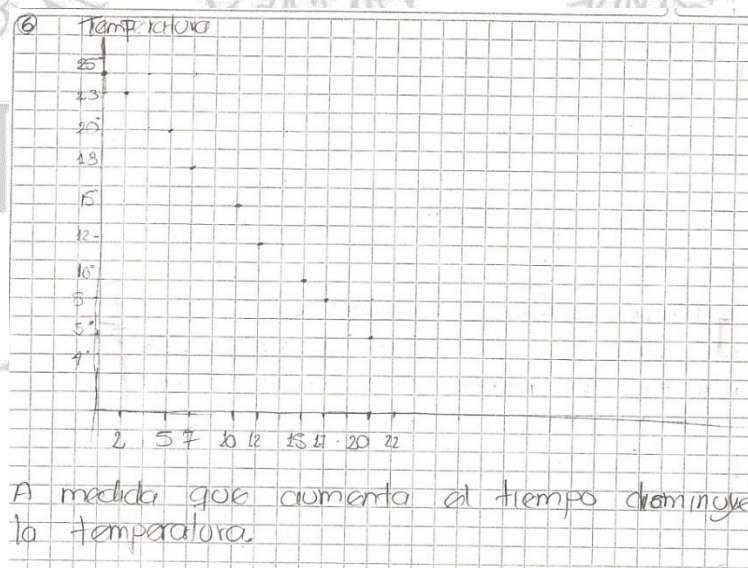 6 Temperatura
25
23
20
18
15
12
10
8
5
4
2 5 7 10 12 15 17 20 22
A medida que aumenta el tiempo disminuye
la temperatura.